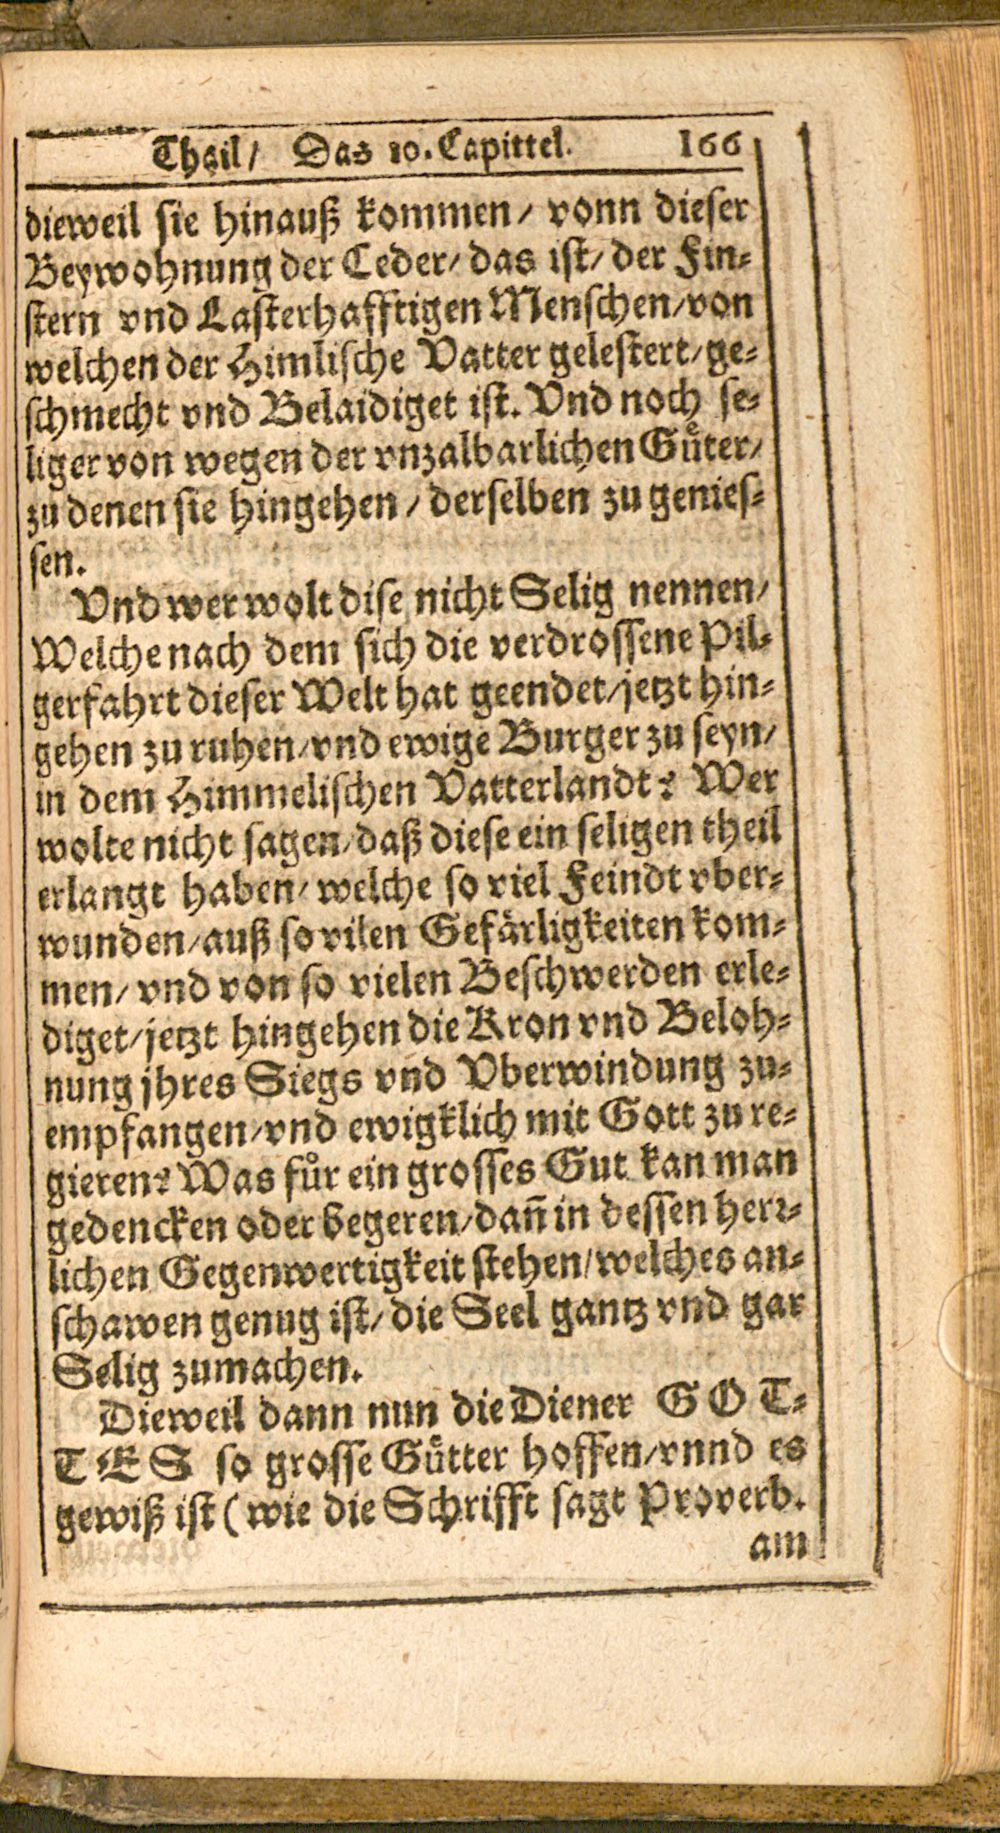 Thail/ Das 10. Capittel. 166
dieweil sie hinauß kommen/ vonn dieser
Beywohnung der Ceder/ das ist/ der Fin-
stern vnd Lasterhafftigen Menschen/ von
welchen der Himlische Vatter gelestert/ ge-
schmecht vnd Belaidiget ist. Vnd noch se-
liger von wegen der vnzalbarlichen Gůter/
zu denen sie hingehen/ derselben zu genies-
sen.
Vnd wer wolt dise nicht Selig nennen/
Welche nach dem sich die verdrossene Pil-
gerfahrt dieser Welt hat geendet/ jetzt hin-
gehen zu ruhen/ vnd ewige Burger zu seyn/
in dem Himmelischen Vatterlandt? Wer
wolte nicht sagen/ daß diese ein seligen theil
erlangt haben/ welche so viel Feindt vber-
wunden/ auß so vilen Gefärligkeiten kom-
men/ vnd von so vielen Beschwerden erle-
diget/ jetzt hingehen die Kron vnd Beloh-
nung jhres Siegs vnd Vberwindung zu-
empfangen/ vnd ewigklich mit Gott zu re-
gieren? Was fůr ein grosses Gut kan man
gedencken oder begeren/ dañ in dessen herr-
lichen Gegenwertigkeit stehen/ welches an-
schawen genug ist/ die Seel gantz vnd gar
Selig zumachen.
Dieweil dann nun die Diener GOT-
TES so grosse Gůtter hoffen/ vnnd es
gewiß ist (wie die Schrifft sagt Proverb.
am